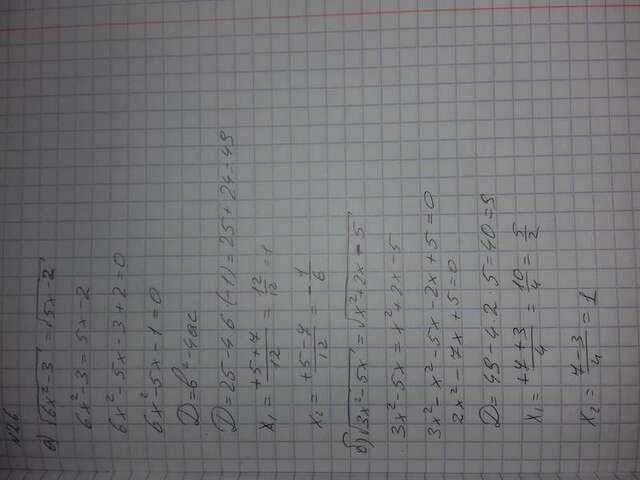 №26
а) √(6x²-3) = √(5x-2)
6x²-3 = 5x-2
6x²-5x-3+2=0
6x²-5x-1=0
D=b²-4ac
D=25-4·6·(-1)=25+24=49
x₁ = (+5+7)/12 = 12/12 = 1
x₂ = (+5-7)/12 = -1/6
б) √(3x²-5x) = √(x²+2x-5)
3x²-5x = x²+2x-5
3x²-x²-5x-2x+5=0
2x²-7x+5=0
D=49-4·2·5=40=9
x₁ = (+7+3)/4 = 10/4 = 5/2
x₂ = (7-3)/4 = 1